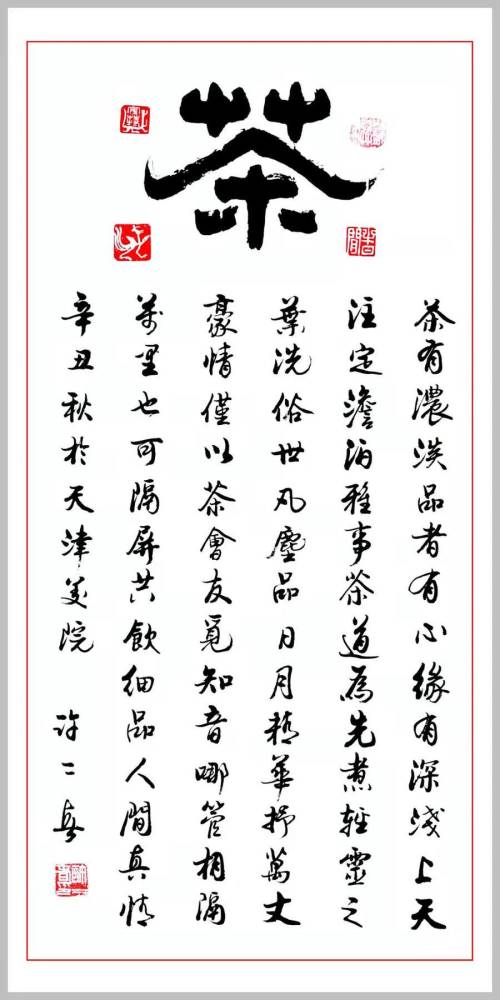 茶
茶有濃淡品者有心緣有深淺上天
注定澹泊雅事茶道為先煮輕靈之
葉洗俗世凡塵品日月精華抒萬丈
豪情僅以茶會友覓知音哪管相隔
萬里也可隔屏共飲細品人間真情
辛丑秋於天津美院